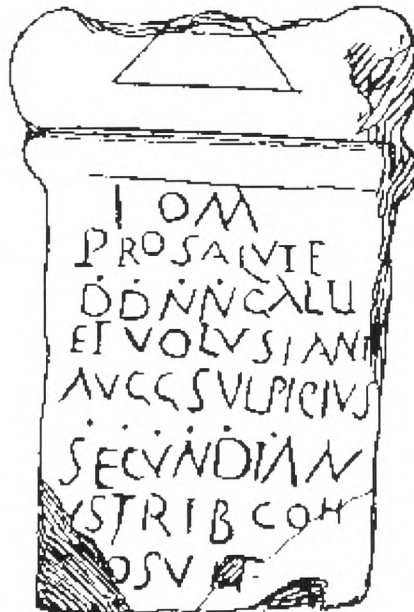 I O M
PROSALVTE
DDNNGALLI
ETVOLVSIANI
AVGGSVLPICIVS
SECVNDIAN
VSTRIBCOH
OSV